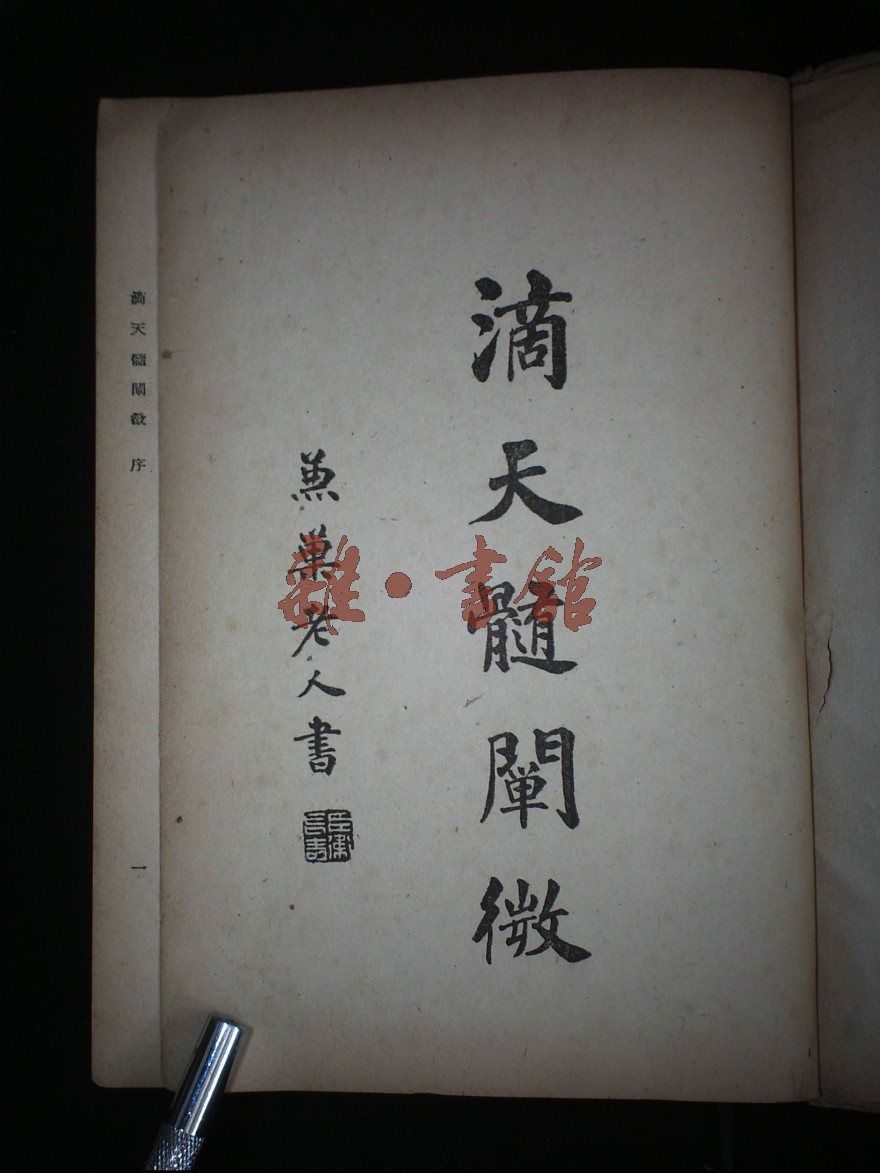 滴天髓闡微
蕉菓老人書
滴天髓闡微 序
一
雜·書館